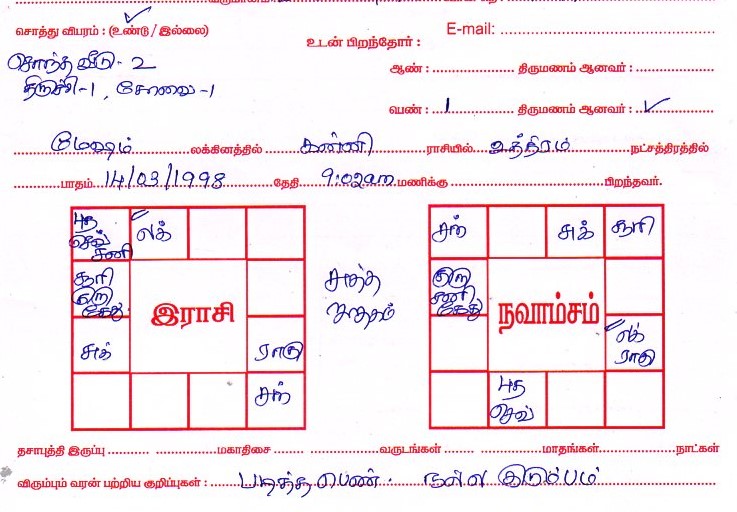 சொத்து விபரம் : (உண்டு / இல்லை)
உடன் பிறந்தோர் :
E-mail:
சொந்த வீடு - 2
திருச்சி - 1, கோவை - 1
ஆண் : திருமணம் ஆனவர் :
பெண் : 1 திருமணம் ஆனவர் : ✓
மேஷம் லக்கினத்தில் கன்னி ராசியில் உத்திரம் நட்சத்திரத்தில்
பாதம் 14/03/1998 தேதி 9:02am மணிக்கு பிறந்தவர்.
புத லக்
செவ்
சனி
சூரி
குரு
கேது
இராசி
சுக் ராகு
சந்
சுத்த
ஜாதகம்
சந் சுக் சூரி
குரு
சனி
கேது
நவாம்சம்
லக்
ராகு
புத
செவ்
தசாபுத்தி இருப்பு மகாதிசை வருடங்கள் மாதங்கள் நாட்கள்
விரும்பும் வரன் பற்றிய குறிப்புகள் : படித்த பெண். நல்ல குடும்பம்